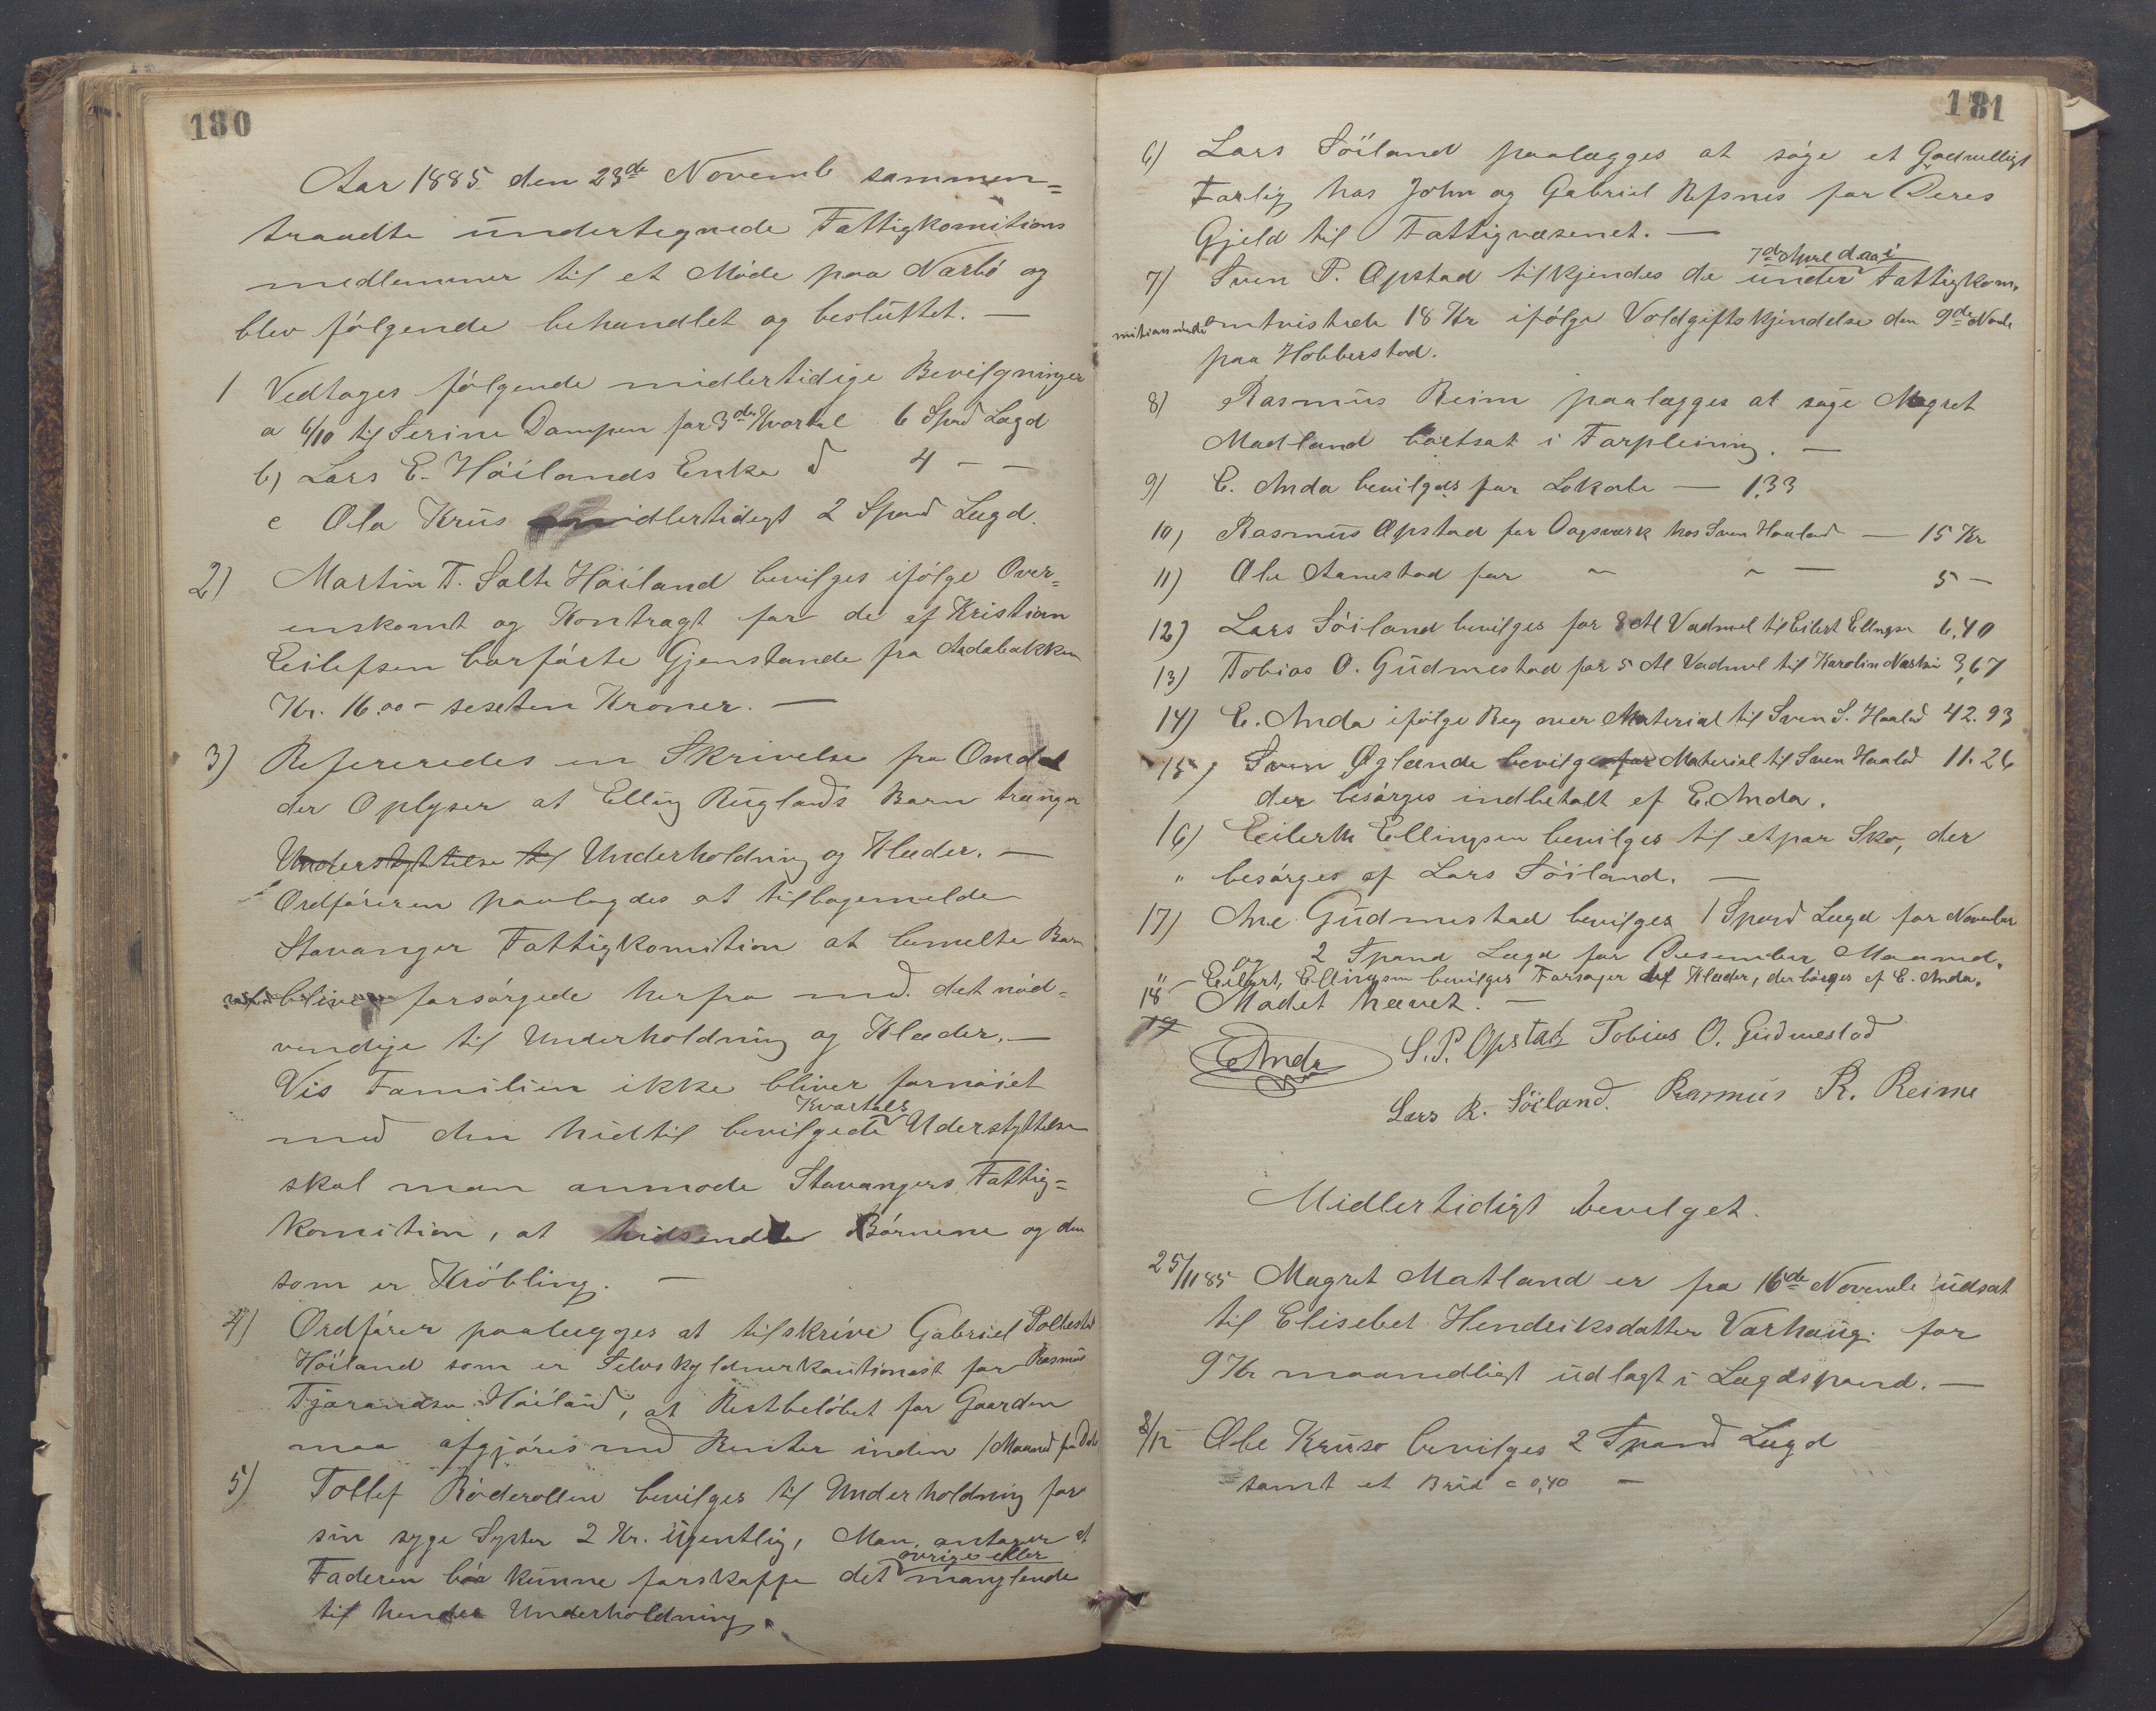 180
Aar 1885 den 23de Novemb sammen=
traadte undertegnede Fattigkomitions
medlemmer til et Møde paa Nærbø og
blev følgende behandlet og besluttet. —
1 Vedtages følgende midlertidige Bevilgninger
a 6/10 til Serine Dampen for 3de Kvartal 6 Spd Lægd
b) Lars E. Høilands Enke d 4 – –
c Ola Krus midlertidigt 2 Spand Lægd.
2) Martin T. Salte Høiland bevilges ifølge Over=
enskomt og Kontragt for de af Kristian
Eilefsen borførte Gjenstande fra Aadabakken
Kr. 16.00 – seseten Kroner. —
3) Refereredes en Skrivelse fra Omdal
der Oplyser at Elling Ruglands Barn trænger
Understøttelse til Underholdning og Klæder. —
Ordføreren paalagdes at tilbagemelde
Stavanger Fattigkomition at bemelte Barn
bliver forsørgede herfra med det nød=
vendige til Underholdning og Klæder. —
Vis Familien ikke bliver fornøiet
Kvartals
med den hidtil bevilgede Understyttelse
skal man anmode Stavangers Fattig=
komition, at hidsende Børnene og den
som er Krøbling. —
4) Ordfører paalægges at tilskrive Gabriel Polhestad
Høiland som er Selvskyldnerkautionist for Rasmus
Tjørandsen Høiland, at Restbeløbet for Gaarden
maa afgjøres med Renter inden 1 Maaned fra Dato
5) Tollef Røderollen bevilges til Underholdning for
sin syge Syster 2 Kr. ugentlig, Man antager at
øvrige eller
Faderen bør kunne forskaffe det manglende
til hendes Underholdning.
181
6) Lars Søiland paalægges at søge et Godvilligt
Forlig hos John og Gabriel Refsnes for Deres
Gjeld til Fattigvæsenet. —
7) Sven P. Opstad tilkjendes de under Fattigkom=
omtvistede 18 Kr ifølge Voldgiftskjendelse den 9de Novb
paa Hobberstad.
8) Rasmus Reim paalægges at søge Magret
Madland bortsat i Forpleining. —
9) E. Anda bevilges for Lokale — 1,33
10) Rasmus Opstad for Dagsværk hos Sven Haaland — 15 Kr
11) Ole Aanestad for ~ ~ — 5 –
12) Lars Søiland bevilges for 8 Al Vadmel til Eilert Ellingsen 6,40
13) Tobias O. Gudmestad for 5 Al Vadmel til Karolin Nærbø 3,67
14) E. Anda ifølge Reg over Material til Sven S. Haalad 42.93
15) Sven Øglænde bevilges for Material til Sven Haalad 11.26
der besørges indbetalt af E. Anda.
16) Eilerth Ellingsen bevilges til etpar Sko, der
" besørges af Lars Søiland. —
17) Ane Gudmestad bevilges 1 Spand Lægd for November
og 2 Spand Lægd for Desember Maaned.
" – Eilert, Ellingsen bevilges Forsager til Klæder, der børges af E. Anda.
18 Mødet hævet. —
E Anda S. P. Opstad Tobias O. Gudmestad
Lars R. Søiland. Rasmus R. Reime
Midlertidigt bevilget.
25/11 85 Magret Matland er fra 16de Novemb udsat
til Elisebet Hendriksdatter Varhaug for
9 Kr maanedligt udlagt i Lægdspand. —
8/12 Ole Kruse bevilges 2 Spand Lægd
samt et Brød a 0,40 —